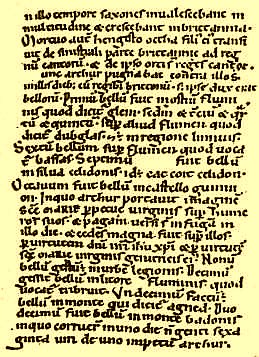 In illo tempore saxones inualescebant in
multitudine & crescebant in brittannia.
Mortuo aut̄ hengisto octha fili' ei' transi
uit de sinistrali parte brittannie ad reg
nū cantorū. & de ipso orti s̄ reges cantor̄.
Tunc arthur pugnabat contra illos
in illis dieb; cū regib; brittonū. s; ipse dux erat
bellorū. Primū bellū fuit in ostiū flumi
nis quod dicit̄ glein. scd̄m & t̄ciū & q̄r
tū & quintū. sup̄ aliud flumen quod
dicit̄ dubglas. & ē in regione linnuis
Sextū bellum sup̄ flumen quod uoca
t̄ bassas. Septimū fuit bellū
in silua celidonis. id ē cat coit celidon.
Octauum fuit bellū in castello guinni
on. In quo arthur portauit imaginē
scē marie p̄petue uirginis sup̄ hume
ros suos. & pagani uersi s̄ in fuga in
illo die. & cedes magna fuit sup̄ illos.
p̄ uirtutem dn̄i nr̄i ihū xp̄i & p̄ uirtutē
scē marie uirginis genitricis ei'. Nonū
bellū gestū ē in urbe legionis. Decimū
gessit bellū in litore fluminis quod
uocat̄ tribruit. Undecimū factū ē
bellū in monte qui dicit̄ agned. Duo
decimū fuit bellū in monte badonis.
in quo corruer̄ in uno die n̄genti sexa
ginta uiri de uno impetu arthur.